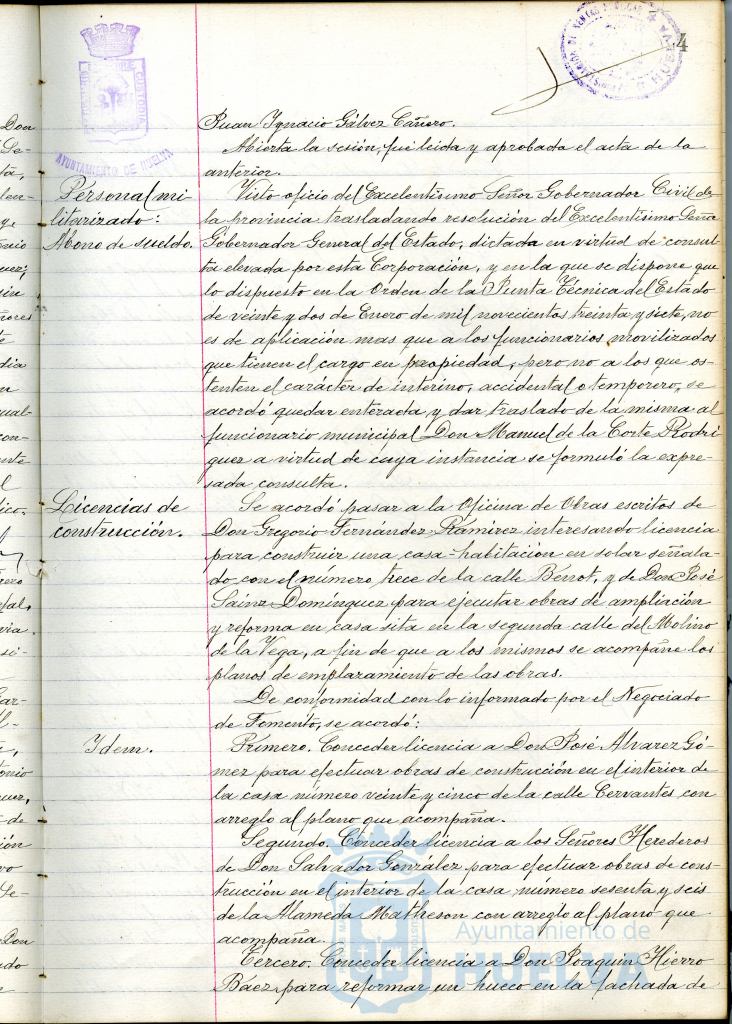 4
AYUNTAMIENTO DE HUELVA
Juan Ygnacio Gálvez Cañero.
Abierta la sesión, fué leida y aprobada el acta de la
anterior.
Personal mi
litarizado:
Abono de sueldo.
Visto oficio del Excelentísimo Señor Gobernador Civil de
la provincia trasladando resolución del Excelentísimo Señor
Gobernador General del Estado, dictada en virtud de consul
ta elevada por esta Corporación, y en la que se dispone que
lo dispuesto en la Orden de la Junta Técnica del Estado
de veinte y dos de Enero de mil novecientos treinta y siete, no
es de aplicación mas que a los funcionarios movilizados
que tienen el cargo en propiedad, pero no a los que os-
tenten el carácter de interino, accidental o temporero, se
acordó quedar enterada y dar traslado de la misma al
funcionario municipal Don Manuel de la Corte Rodrí
guez a virtud de cuya instancia se formuló la expre-
sada consulta.
Licencias de
construcción.
Se acordó pasar a la Oficina de Obras escritos de
Don Gregorio Fernández Ramírez interesando licencia
para construir una casa-habitación en solar señala-
do con el número trece de la calle Benot, y de Don José
Sáinz Domínguez para ejecutar obras de ampliación
y reforma en casa sita en la segunda calle del Molino
de la Vega, a fin de que a los mismos se acompañe los
planos de emplazamiento de las obras.
De conformidad con lo informado por el Negociado
de Fomento, se acordó:
Ydem.
Primero. Conceder licencia a Don José Alvarez Gó-
mez para efectuar obras de construcción en el interior de
la casa número veinte y cinco de la calle Cervantes con
arreglo al plano que acompaña.
Segundo. Conceder licencia a los Señores Herederos
de Don Salvador González para efectuar obras de cons-
trucción en el interior de la casa número sesenta y seis
de la Alameda Matheson con arreglo al plano que
acompaña.
Ayuntamiento de
HUELVA
Tercero. Conceder licencia a Don Joaquin Hierro
Báez para reformar un hueco en la fachada de